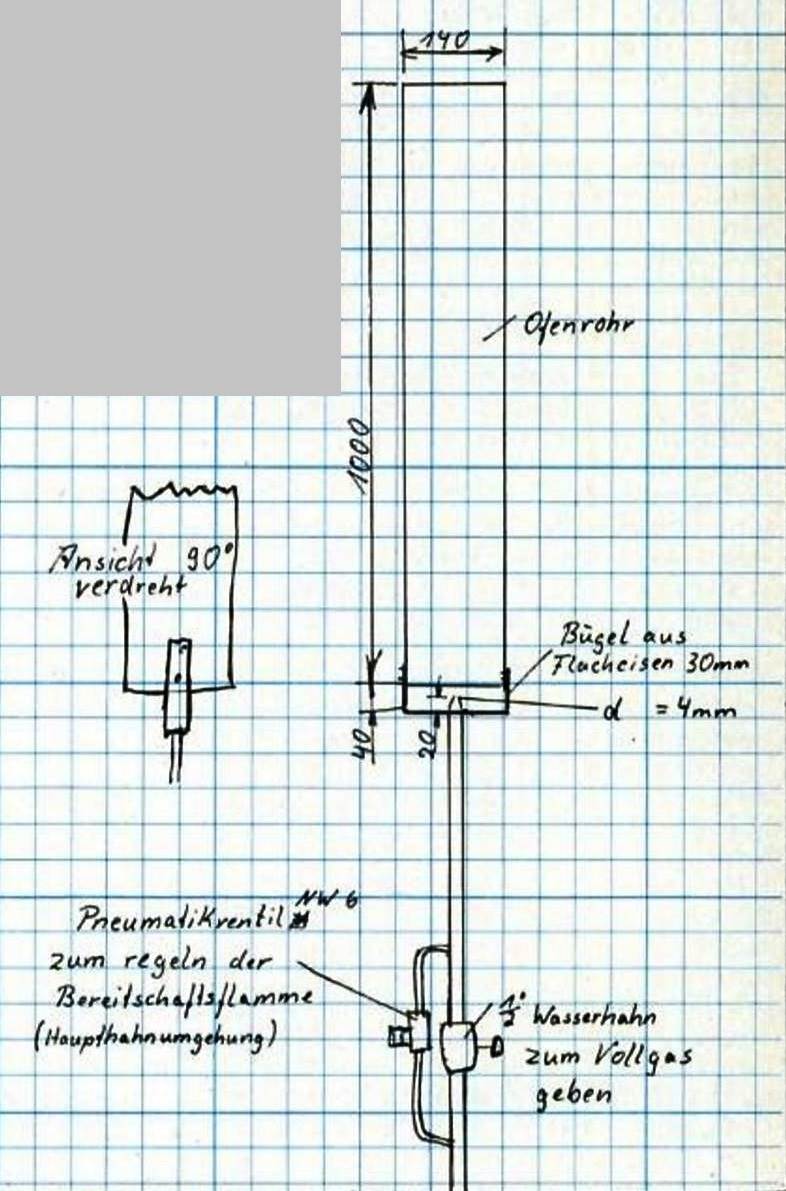 140
Ofenrohr
1000
Ansicht 90°
verdreht
Bügel aus
Flacheisen 30mm
d = 4mm
40
20
Pneumatikventil NW 6
zum regeln der
Bereitschaftsflamme
(Haupthahnumgehung)
1/2" Wasserhahn
zum Vollgas
geben